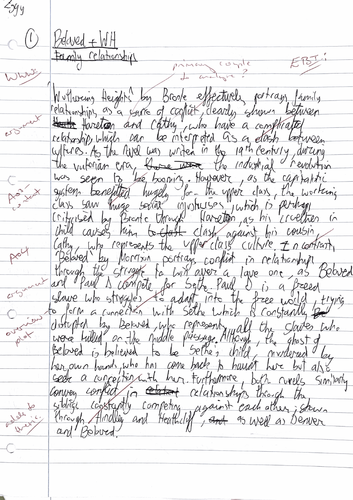 Eggy
① Beloved + WH
Family relationships
primary couple
to analyse?
EBI:
'Wuthering Heights' by Bronte effectively portrays family
relationships as a source of conflict, clearly shown between
Hareton and Cathy, who have a complicated
relationship which can be interpreted as a clash between
cultures. As the novel was written in the 19th century, during
the victorian era, the industrial revolution
was seen to be booming. However, as the capitalist
system benefited hugely for the upper class, the working
class saw huge social injustices, which is perhaps
criticised by Bronte through Hareton, as his cruelties in
child causes him to clash against his cousin,
Cathy, who represents the upper class culture. In contrast,
'Beloved' by Morrison portrays conflict in relationships
through the struggle to win over a love one, as Beloved
and Paul D compete for Sethe. Paul D is a freed
slave who struggles to adapt into the free world, trying
to form a connection with Sethe which is constantly
disrupted by Beloved, who represents all the slaves who
were killed on the middle passage. Although, the ghost of
Beloved is believed to be Sethe's child, murdered by
her own hands, who has come back to haunt her but also
seek a connection with her. Furthermore, both novels similarly
convey conflict in relationships through the
siblings constantly competing against each other, shown
through Hindley and Heathcliff, as well as Denver
and Beloved.
argument
argument
overview